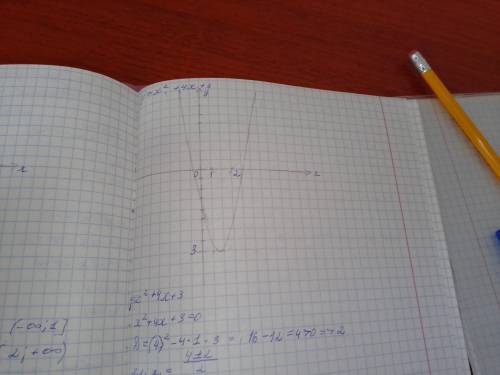 x² + 4x + y
0 1 2 x
3
x
x²+4x+3
x²+4x+3=0
D=(4)²-4·1·3 = 16-12=4>0=>2
(-∞; 1]
2; +∞)
4±2
2